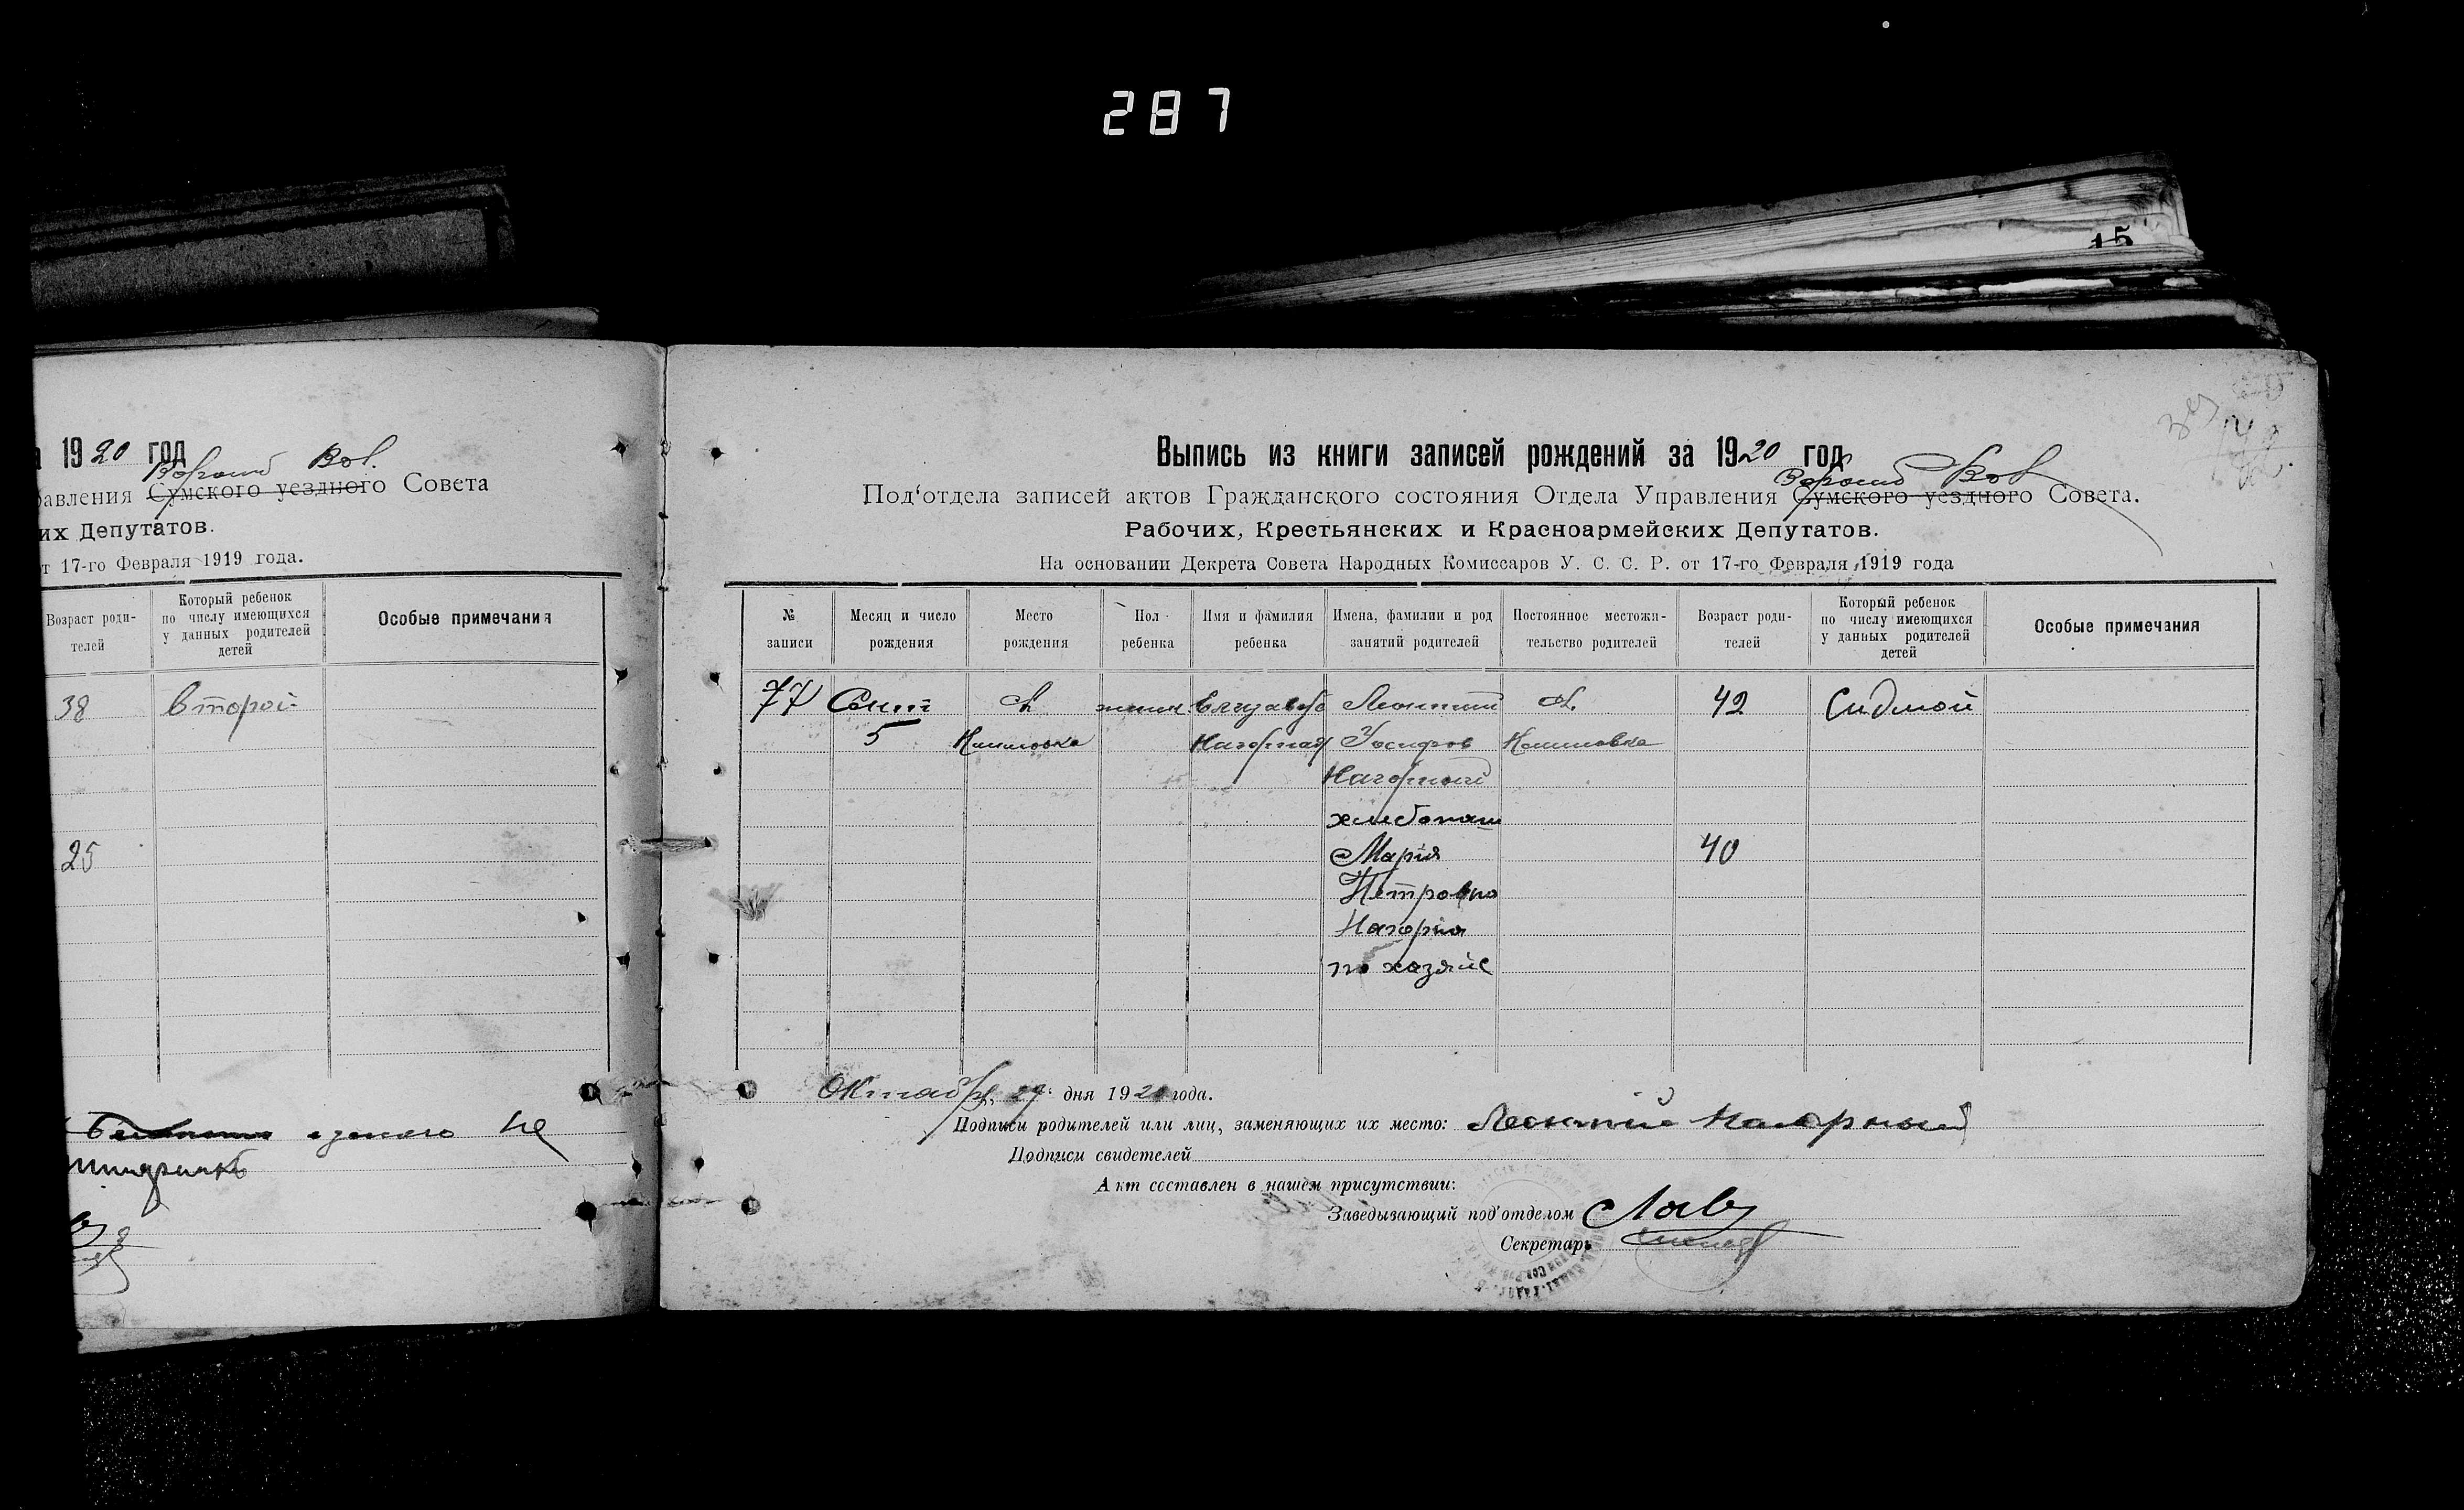 287
15
1920 год
Ворожб Вол.
равления Сумского уездного Совета
их Депутатов.
т 17-го Февраля 1919 года.
Возраст роди-
телей
Который ребенок
по числу имеющихся
у данных родителей
детей
Особые примечания
38 второй
25
не
Выпись из книги записей рождений за 1920 год
Ворожб Вол
Под‘отдела записей актов Гражданского состояния Отдела Управления Сумского уездного Совета.
Рабочих, Крестьянских и Красноармейских Депутатов.
На основании Декрета Совета Народных Комиссаров У. С. С. Р. от 17-го Февраля 1919 года
№
записи
Месяц и число
рождения
Место
рождения
Пол
ребенка
Имя и фамилия
ребенка
Имена, фамилии и род
занятий родителей
Постоянное местожи-
тельство родителей
Возраст роди-
телей
Который ребенок
по числу имеющихся
у данных родителей
детей
Особые примечания
77 Сент с. женск Елизавета Леонтий с. 42 Сидмой
5 Нагорная Иосифов
Нагорный
хлебопаш
Марія 40
Петровна
Нагорна
по хозяйс
Октября 29 дня 1920 года.
Подписи родителей или лиц, заменяющих их место: Леонтий Нагорный
Подписи свидетелей
Акт составлен в нашем присутствии:
Заведывающий под‘отделом
Секретарь